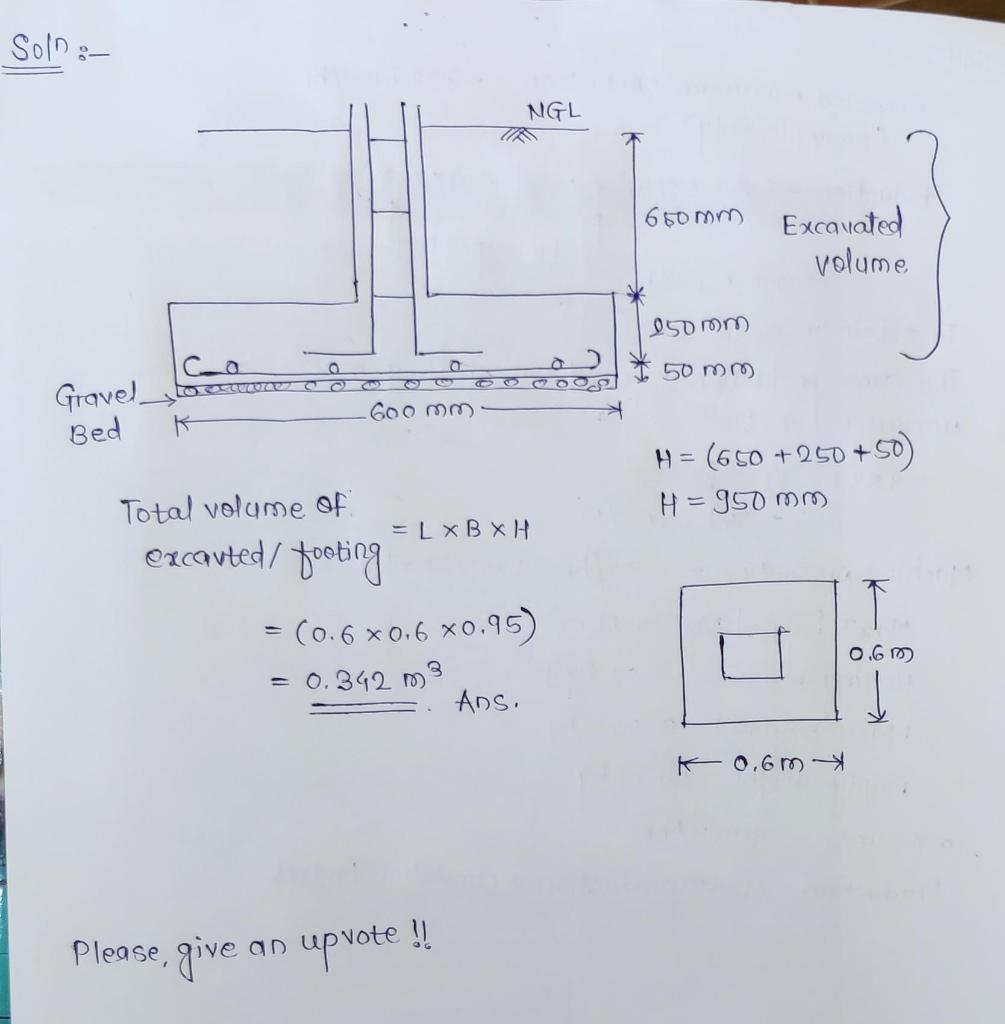 Soln :-
NGL
650 mm
Excavated
volume
250 mm
50 mm
Gravel
Bed
600 mm
H = (650 + 250 + 50)
H = 950 mm
Total volume of
excavted / footing = L x B x H
= (0.6 x 0.6 x 0.95)
= 0.342 m³ . Ans.
0.6 m
0.6 m
Please, give an upvote !!